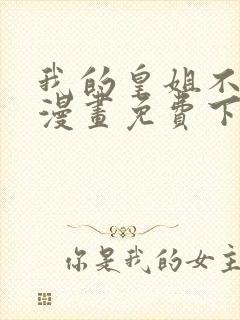 我的皇姐不
漫畫免費下
你是我的女主